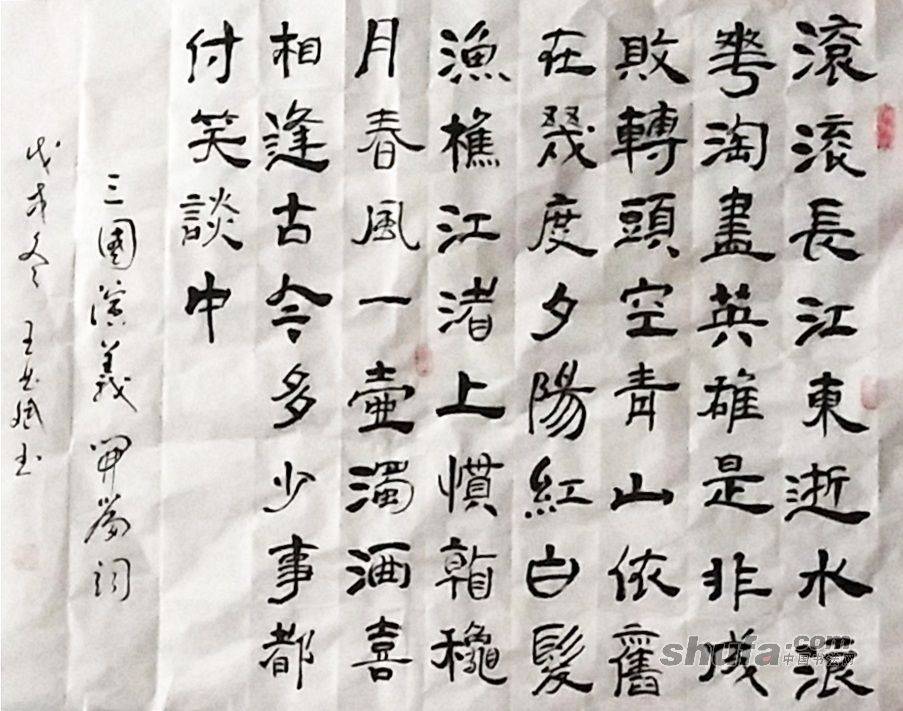 滾滾長江東逝水浪
華淘盡英雄是非成
敗轉頭空青山依舊
在幾度夕陽紅白髮
漁樵江渚上慣看穐
月春風一壺濁酒喜
相逢古今多少事都
付笑談中
三國演義開篇詞
戊戌冬 王志斌書
shufa.com 中国书法网